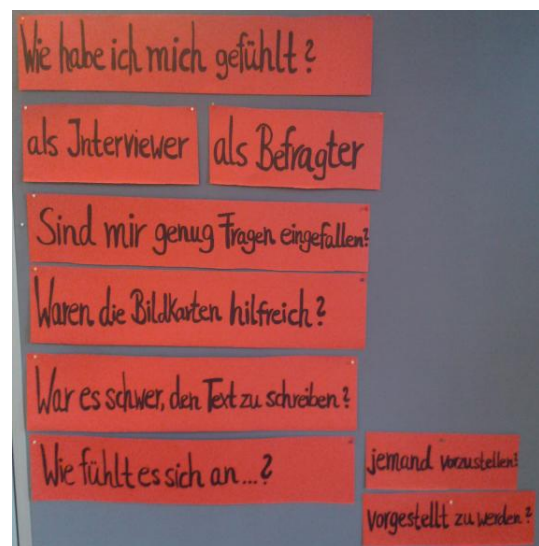 Wie habe ich mich gefühlt?
als Interviewer
als Befragter
Sind mir genug Fragen eingefallen?
Waren die Bildkarten hilfreich?
War es schwer, den Text zu schreiben?
Wie fühlt es sich an...?
jemand vorzustellen?
vorgestellt zu werden?